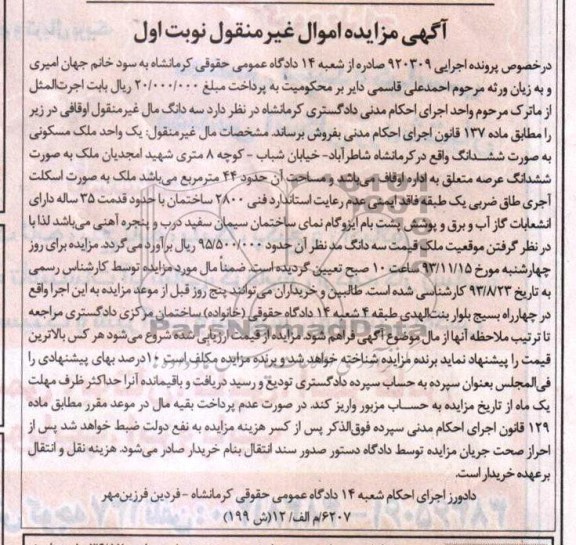 آگهی مزایده اموال غیر منقول نوبت اول
درخصوص پرونده اجرایی ۹۲۰۳۰۹ صادره از شعبه ۱۴ دادگاه عمومی حقوقی کرمانشاه به سود خانم جهان امیری
و به زیان ورثه مرحوم احمدعلی قاسمی دایر بر محکومیت به پرداخت مبلغ ۲۰/۰۰۰/۰۰۰ ریال بابت اجرت‌المثل
از ماترک مرحوم واحد اجرای احکام مدنی دادگستری کرمانشاه در نظر دارد سه دانگ مال غیرمنقول اوقافی در زیر
را مطابق ماده ۱۳۷ قانون اجرای احکام مدنی بفروش برساند. مشخصات مال غیرمنقول: یک واحد ملک مسکونی
به صورت ششدانگ واقع در کرمانشاه شاطرآباد- خیابان شباب - کوچه ۸ متری شهید امجدیان ملک به صورت
ششدانگ عرصه متعلق به اداره اوقاف می باشد و مساحت آن حدود ۴۴ مترمربع می‌باشد ملک به صورت اسکلت
آجری طاق ضربی یک طبقه فاقد ایمنی عدم رعایت استاندارد فنی ۲۸۰۰ ساختمان با حدود قدمت ۳۵ ساله دارای
انشعابات گاز آب و برق و پوشش پشت بام ایزوگام نمای ساختمان سیمان سفید درب و پنجره آهنی می‌باشد لذا با
در نظر گرفتن موقعیت ملک قیمت سه دانگ مد نظر آن حدود ۹۵/۵۰۰/۰۰۰ ریال برآورد می‌گردد. مزایده برای روز
چهارشنبه مورخ ۹۳/۱۱/۱۵ ساعت ۱۰ صبح تعیین گردیده است. ضمناً مال مورد مزایده توسط کارشناس رسمی
به تاریخ ۹۳/۸/۲۳ کارشناسی شده است. طالبین و خریداران می‌توانند پنج روز قبل از موعد مزایده به این اجرا واقع
در چهارراه بسیج بلوار بنت‌الهدی طبقه ۴ شعبه ۱۴ دادگاه حقوقی (خانواده) ساختمان مرکزی دادگستری مراجعه
تا ترتیب ملاحظه آنها از مال موضوع آگهی فراهم شود. مزایده از قیمت ارزیابی شده شروع می‌شود هر کس بالاترین
قیمت را پیشنهاد نماید برنده مزایده شناخته خواهد شد و برنده مزایده مکلف است ۱۰درصد بهای پیشنهادی را
فی‌المجلس بعنوان سپرده به حساب سپرده دادگستری تودیع و رسید دریافت و باقیمانده آنرا حداکثر ظرف مهلت
یک ماه از تاریخ مزایده به حساب مزبور واریز کند. در صورت عدم پرداخت بقیه مال در موعد مقرر مطابق ماده
۱۲۹ قانون اجرای احکام مدنی سپرده فوق‌الذکر پس از کسر هزینه مزایده به نفع دولت ضبط خواهد شد پس از
احراز صحت جریان مزایده توسط دادگاه دستور صدور سند انتقال بنام خریدار صادر می‌شود. هزینه نقل و انتقال
برعهده خریدار است.
دادورز اجرای احکام شعبه ۱۴ دادگاه عمومی حقوقی کرمانشاه - فردین فرزین‌مهر
۶۲۰۷/م الف/ ۱۲(ش ۱۹۹)
ParsNamadData